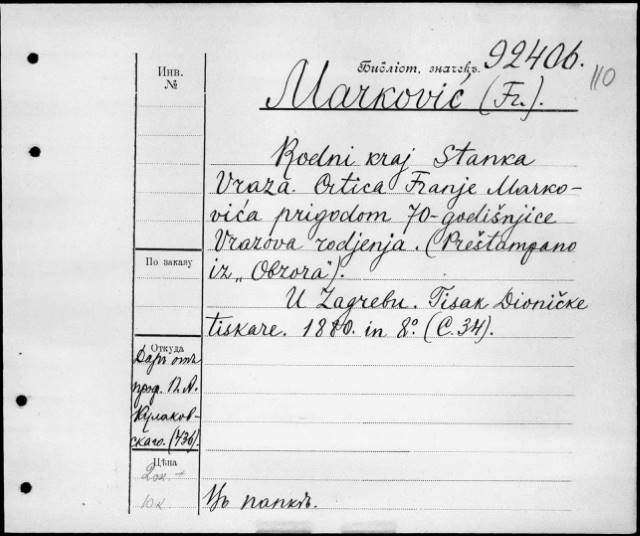 92406.
110
Инв.
№
Библіот. значекъ.
Marković (Fr.).
Rodni kraj Stanka
Vraza. Crtica Franje Marko-
vića prigodom 70-godišnjice
Vrazova rodjenja. (Preštampano
iz „Obzora“).
U Zagrebu. Tisak Dioničke
tiskare. 1880. in 8º. (C. 34).
По заказу
Откуда
Даръ отъ
проф. П. А.
Кулаков-
скаго. (736).
Цѣна
10 к.
Въ папкѣ.